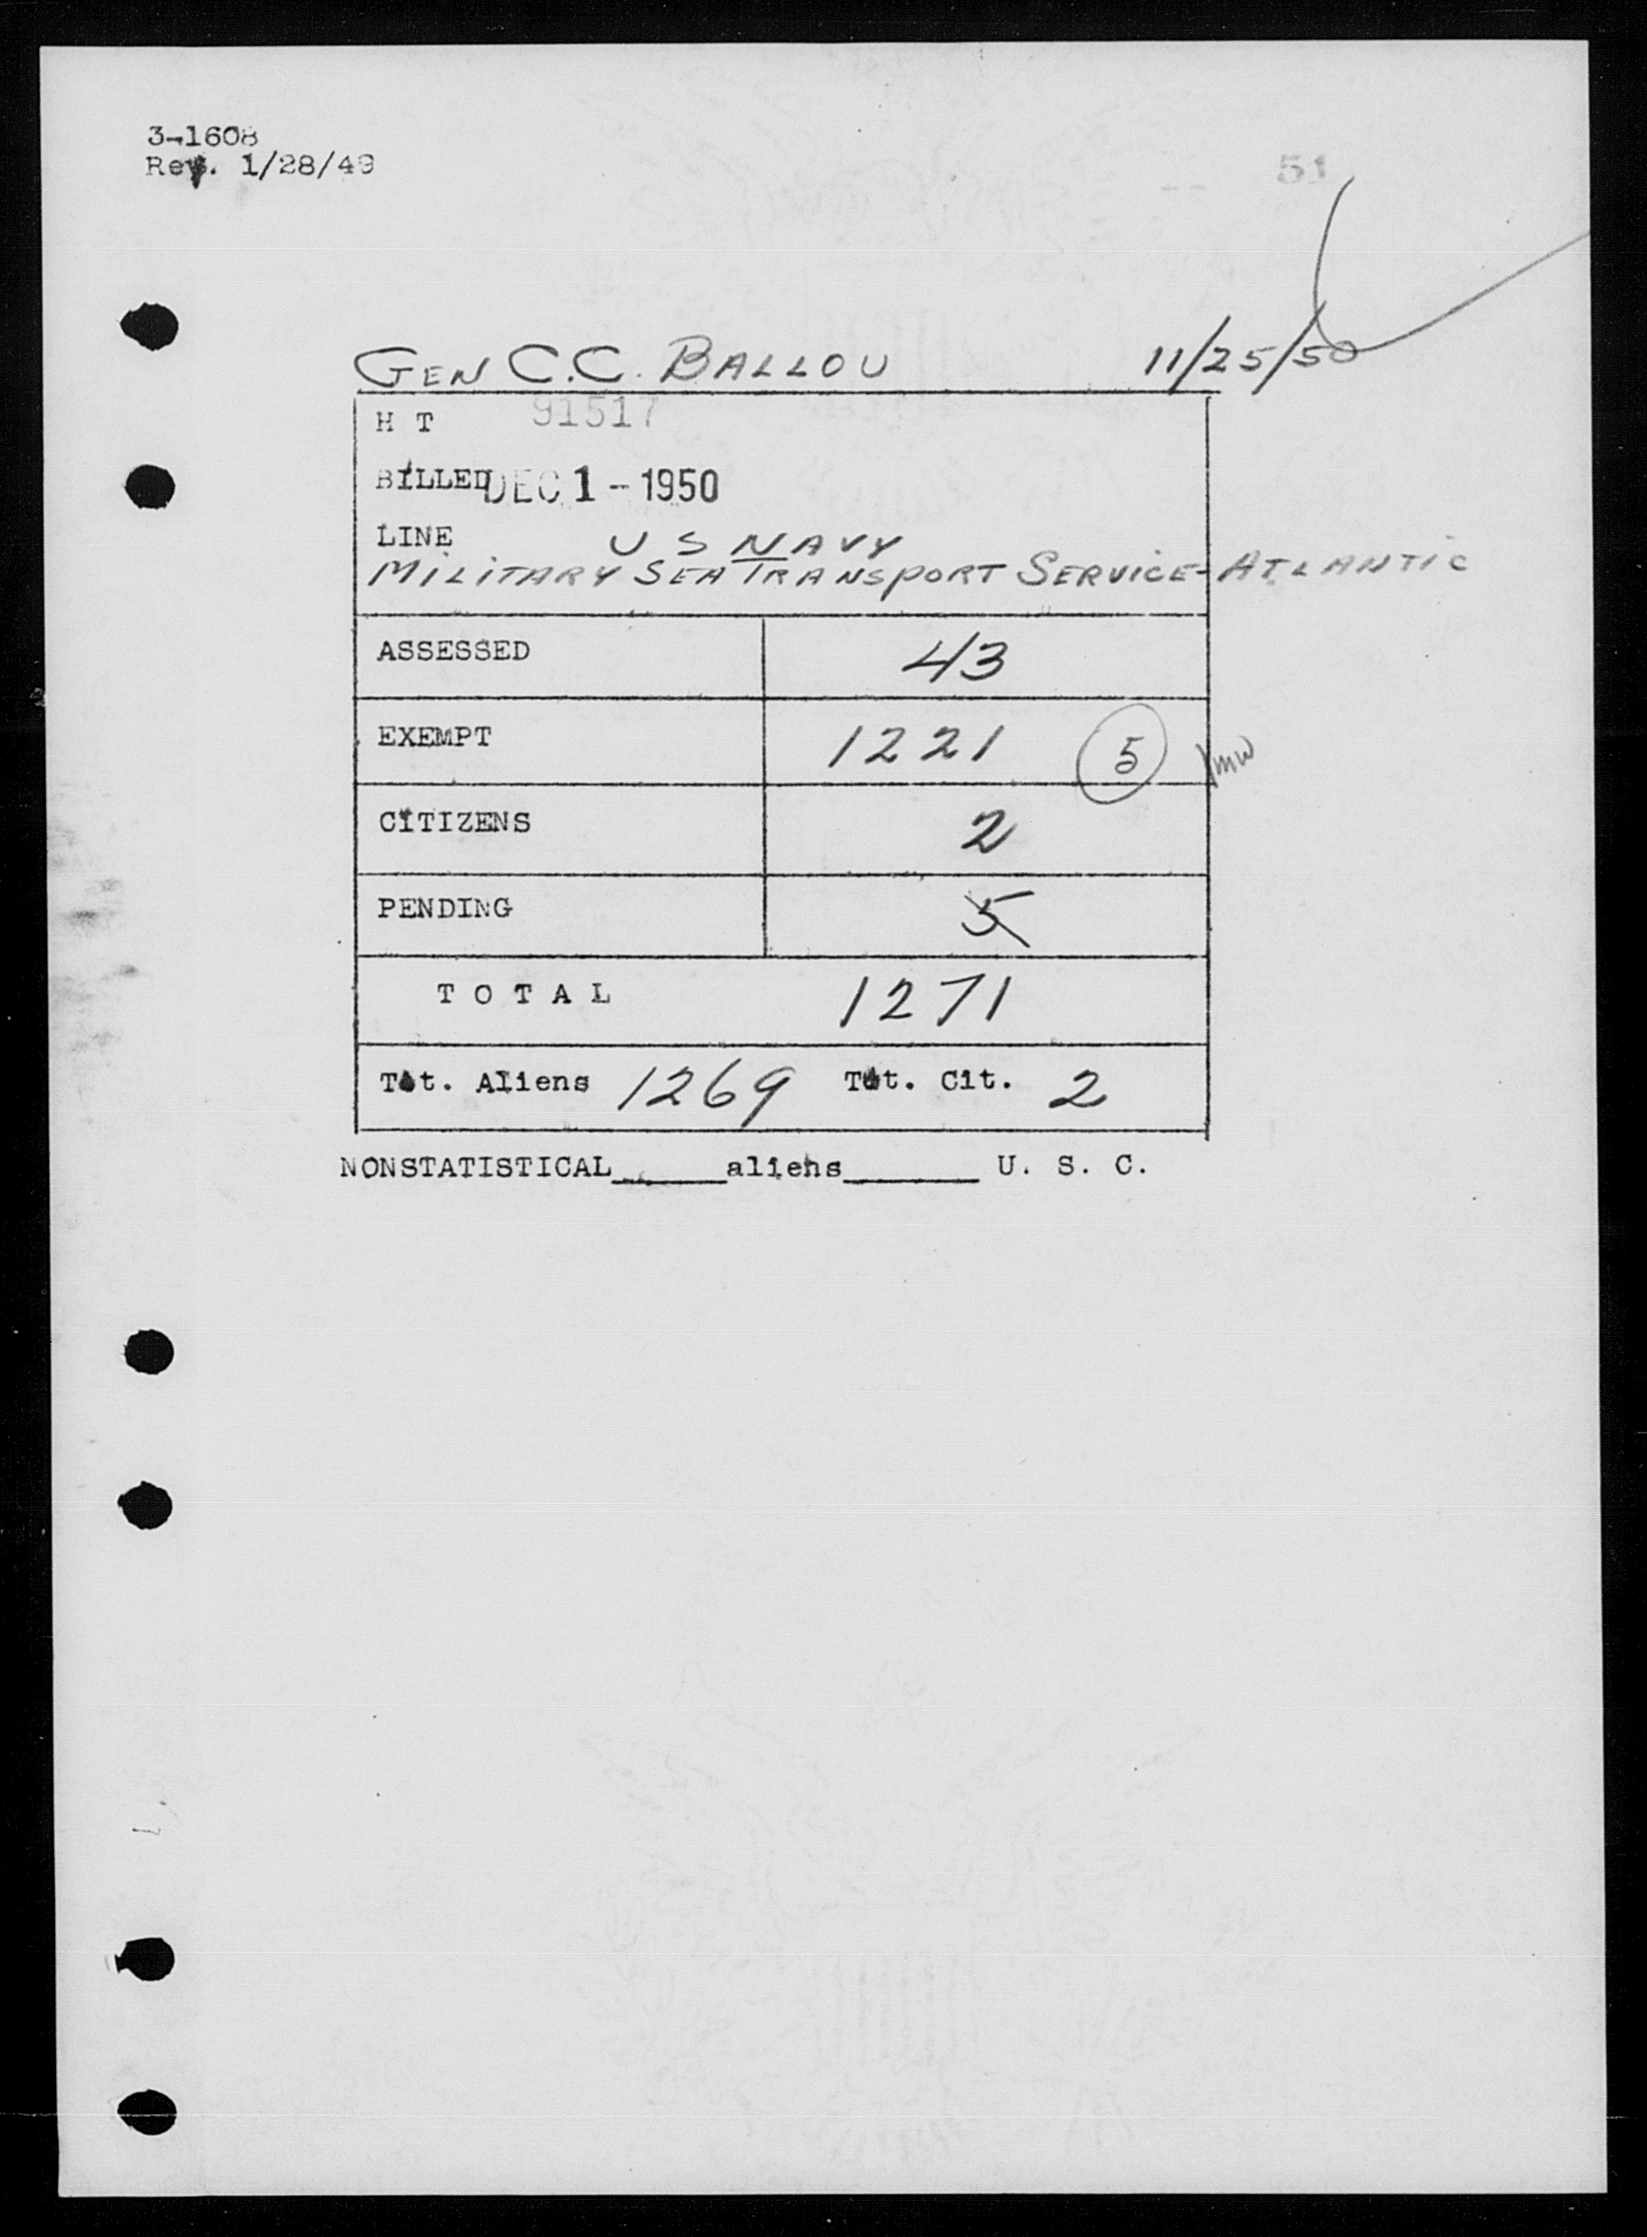 3-1608
Rev. 1/28/49
51
GEN C.C. BALLOU 11/25/50
H T 91517
BILLED DEC 1 - 1950
LINE U S NAVY
MILITARY SEA TRANSPORT SERVICE - ATLANTIC
ASSESSED 43
EXEMPT 1221 5
CITIZENS 2
PENDING 5
T O T A L 1271
Tot. Aliens 1269 Tot. Cit. 2
NONSTATISTICAL______aliens_______ U. S. C.